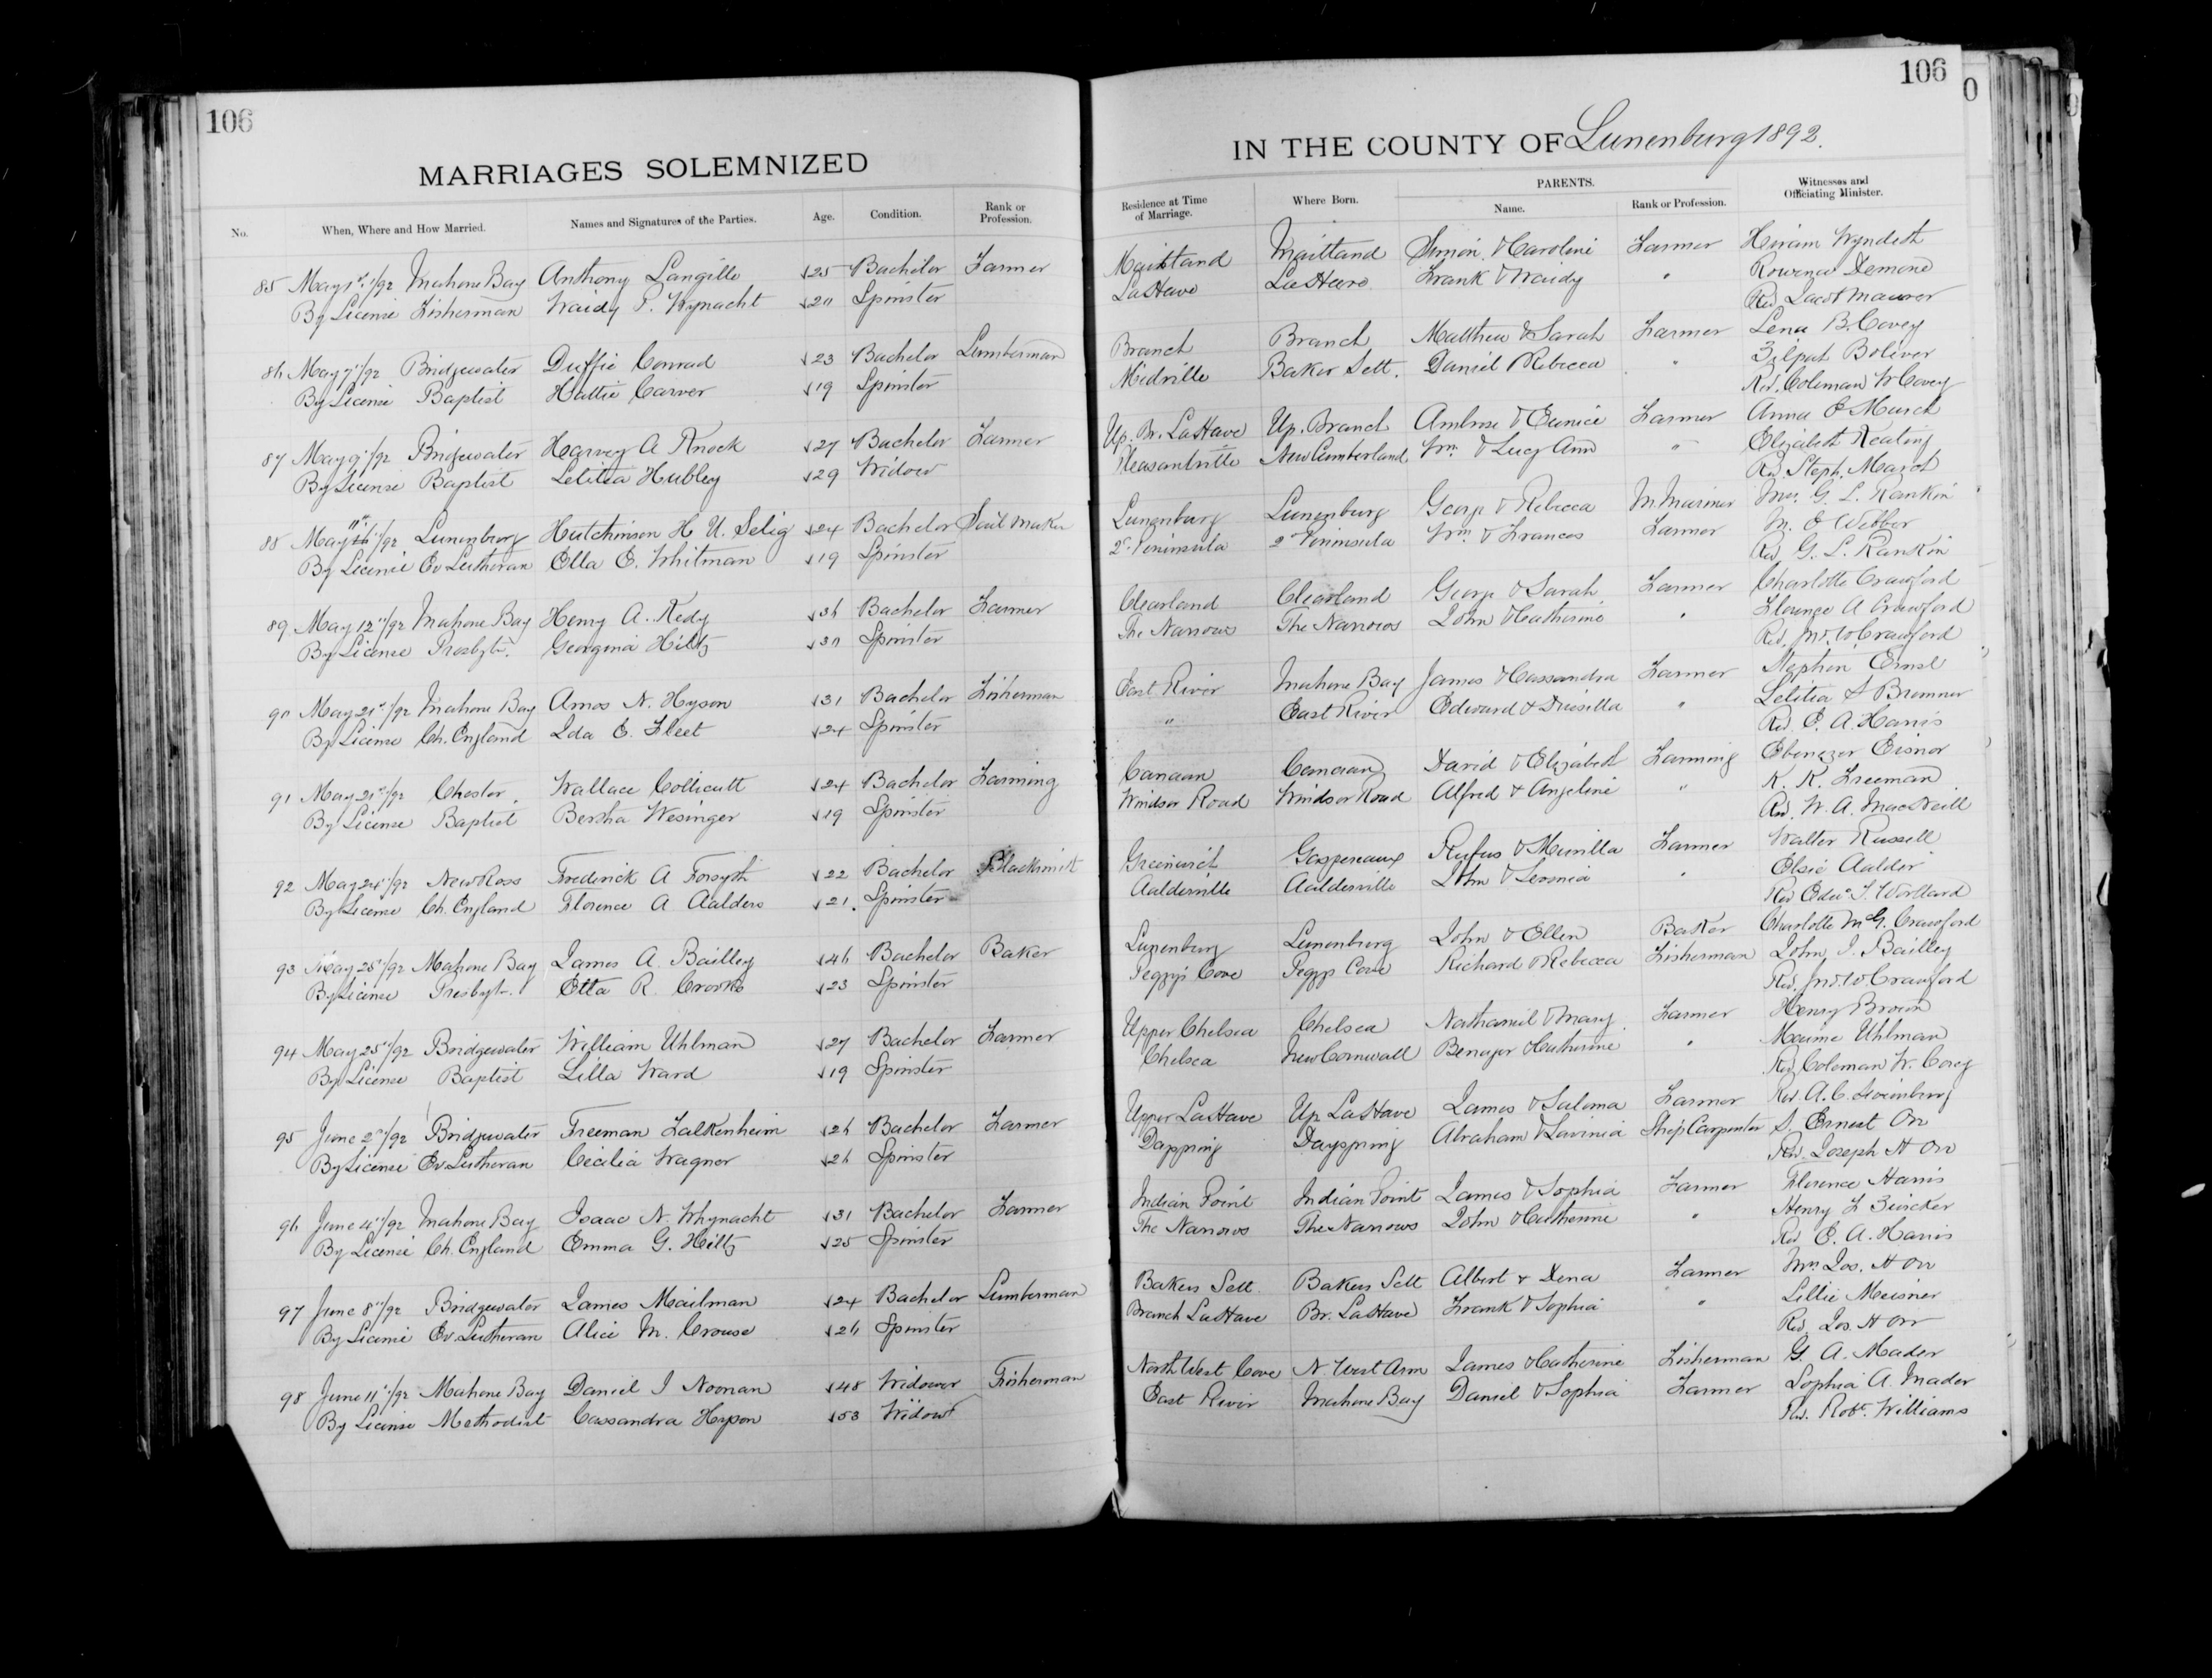 106
106
0
MARRIAGES SOLEMNIZED
IN THE COUNTY OF Lunenburg 1892.
No. When, Where and How Married. Names and Signatures of the Parties. Age. Condition. Rank or Profession. Residence at Time of Marriage. Where Born. PARENTS. Name. Rank or Profession. Witnesses and Officiating Minister.
85 May 1st/92 Mahone Bay Anthony Langille 25 Bachelor Farmer Maitland Maitland Simon & Caroline Farmer Hiram Wyndeth
By License Fisherman Naidy P. Wynacht 20 Spinster LaHave LaHave Frank & Naidy " Rowena Demone
Rev Jacob Maurer
86 May 7th/92 Bridgewater Duffie Conrad 23 Bachelor Lumberman Branch Branch Matthew & Sarah Farmer Lena B. Covey
By License Baptist Hattie Carver 19 Spinster Midville Baker Sett. Daniel & Rebecca " Zilpah Boliver
Rev. Coleman W Covey
87 May 9th/92 Bridgewater Harvey A Knock 27 Bachelor Farmer Up. Br. LaHave Up. Branch Ambrose & Eunice Farmer Anna E March
By License Baptist Letitia Hubley 29 Widow Pleasantville New Cumberland Wm & Lucy Ann " Elizabeth Keating
Rev. Steph. March
88 May 11th/92 Lunenburg Hutchinson H. U. Selig 24 Bachelor Sail Maker Lunenburg Lunenburg George & Rebecca M. Mariner Mrs. G. L. Rankin
By License Ev Lutheran Ella E. Whitman 19 Spinster 2d Peninsula 2d Peninsula Wm & Frances Farmer M. E Webber
Rev. G. L. Rankin
89 May 12th/92 Mahone Bay Henry A. Kedy 36 Bachelor Farmer Clearland Clearland George & Sarah Farmer Charlotte Crawford
By License Presbytn. Georgina Hiltz 30 Spinster The Narrows The Narrows John & Catherine " Florence A Crawford
Rev. Jno. W Crawford
90 May 21st/92 Mahone Bay Amos N. Hyson 31 Bachelor Fisherman East River Mahone Bay James & Cassandra Farmer Stephen Ernst
By License Ch. England Ida E. Fleet 24 Spinster " East River Edward & Drusilla " Letitia S Bremner
Rev. E. A. Harris
91 May 21st/92 Chester Wallace Collicutt 24 Bachelor Farming Canaan Canaan David & Elizabeth Farming Ebenezer Eisnor
By License Baptist Bertha Wesinger 19 Spinster Windsor Road Windsor Road Alfred & Angeline " K. K. Freeman
Rev. W. A. MacNeill
92 May 24th/92 New Ross Frederick A Forsyth 22 Bachelor Blacksmith Greenwich Gaspereaux Rufus & Murilla Farmer Walter Russell
By License Ch. England Florence A Aalders 21. Spinster Aaldersville Aaldersville John & Leonia " Elsie Aalder
93 May 25th/92 Mahone Bay James A. Bailley 46 Bachelor Baker Lunenburg Lunenburg John & Ellen Baker Charlotte McG. Crawford
By License Presbytn. Etta R. Crooks 23 Spinster Peggy's Cove Peggys Cove Richard & Rebecca Fisherman John J. Bailley
Rev. Jno. W Crawford
94 May 25th/92 Bridgewater William Uhlman 27 Bachelor Farmer Upper Chelsea Chelsea Nathaniel & Mary Farmer Henry Brown
By License Baptist Lilla Ward 19 Spinster Chelsea New Cornwall Benajer & Catherine " Mayme Uhlman
Rev. Coleman W. Corey
95 June 2nd/92 Bridgewater Freeman Falkenheim 26 Bachelor Farmer Upper LaHave Up. LaHave James & Saloma Farmer Rev. A. C. Swinburg
By License Ev Lutheran Cecilia Wagner 26 Spinster Dayspring Dayspring Abraham & Lavinia Ship Carpenter S. Ernest Orr
Rev. Joseph H Orr
96 June 4th/92 Mahone Bay Isaac N. Whynacht 31 Bachelor Farmer Indian Point Indian Point James & Sophia Farmer Florence Harris
By License Ch. England Emma G. Hiltz 25 Spinster The Narrows The Narrows John & Catherine " Henry L Zwicker
Rev E. A. Harris
97 June 8th/92 Bridgewater James Mailman 24 Bachelor Lumberman Bakers Sett. Bakers Sett Albert & Dena Farmer Mrs Jos. H Orr
By License Ev. Lutheran Alice M. Crouse 26 Spinster Branch LaHave Br. LaHave Frank & Sophia " Lillie Meisner
Rev. Jos. H Orr
98 June 11th/92 Mahone Bay Daniel J Noonan 48 Widower Fisherman North West Cove N. West Arm James & Catherine Fisherman G. A. Mader
By License Methodist Cassandra Hyson 53 Widow East River Mahone Bay Daniel & Sophia Farmer Sophia A. Mader
Rev. Robt. Williams